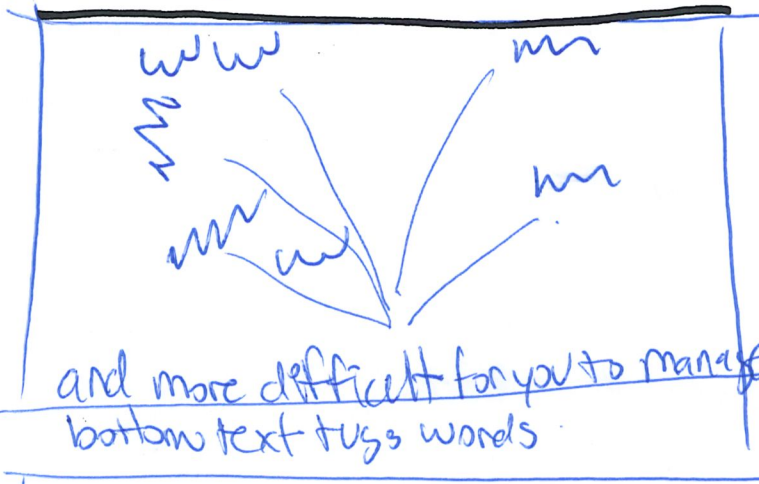 and more difficult for you to manage
bottom text tugs words